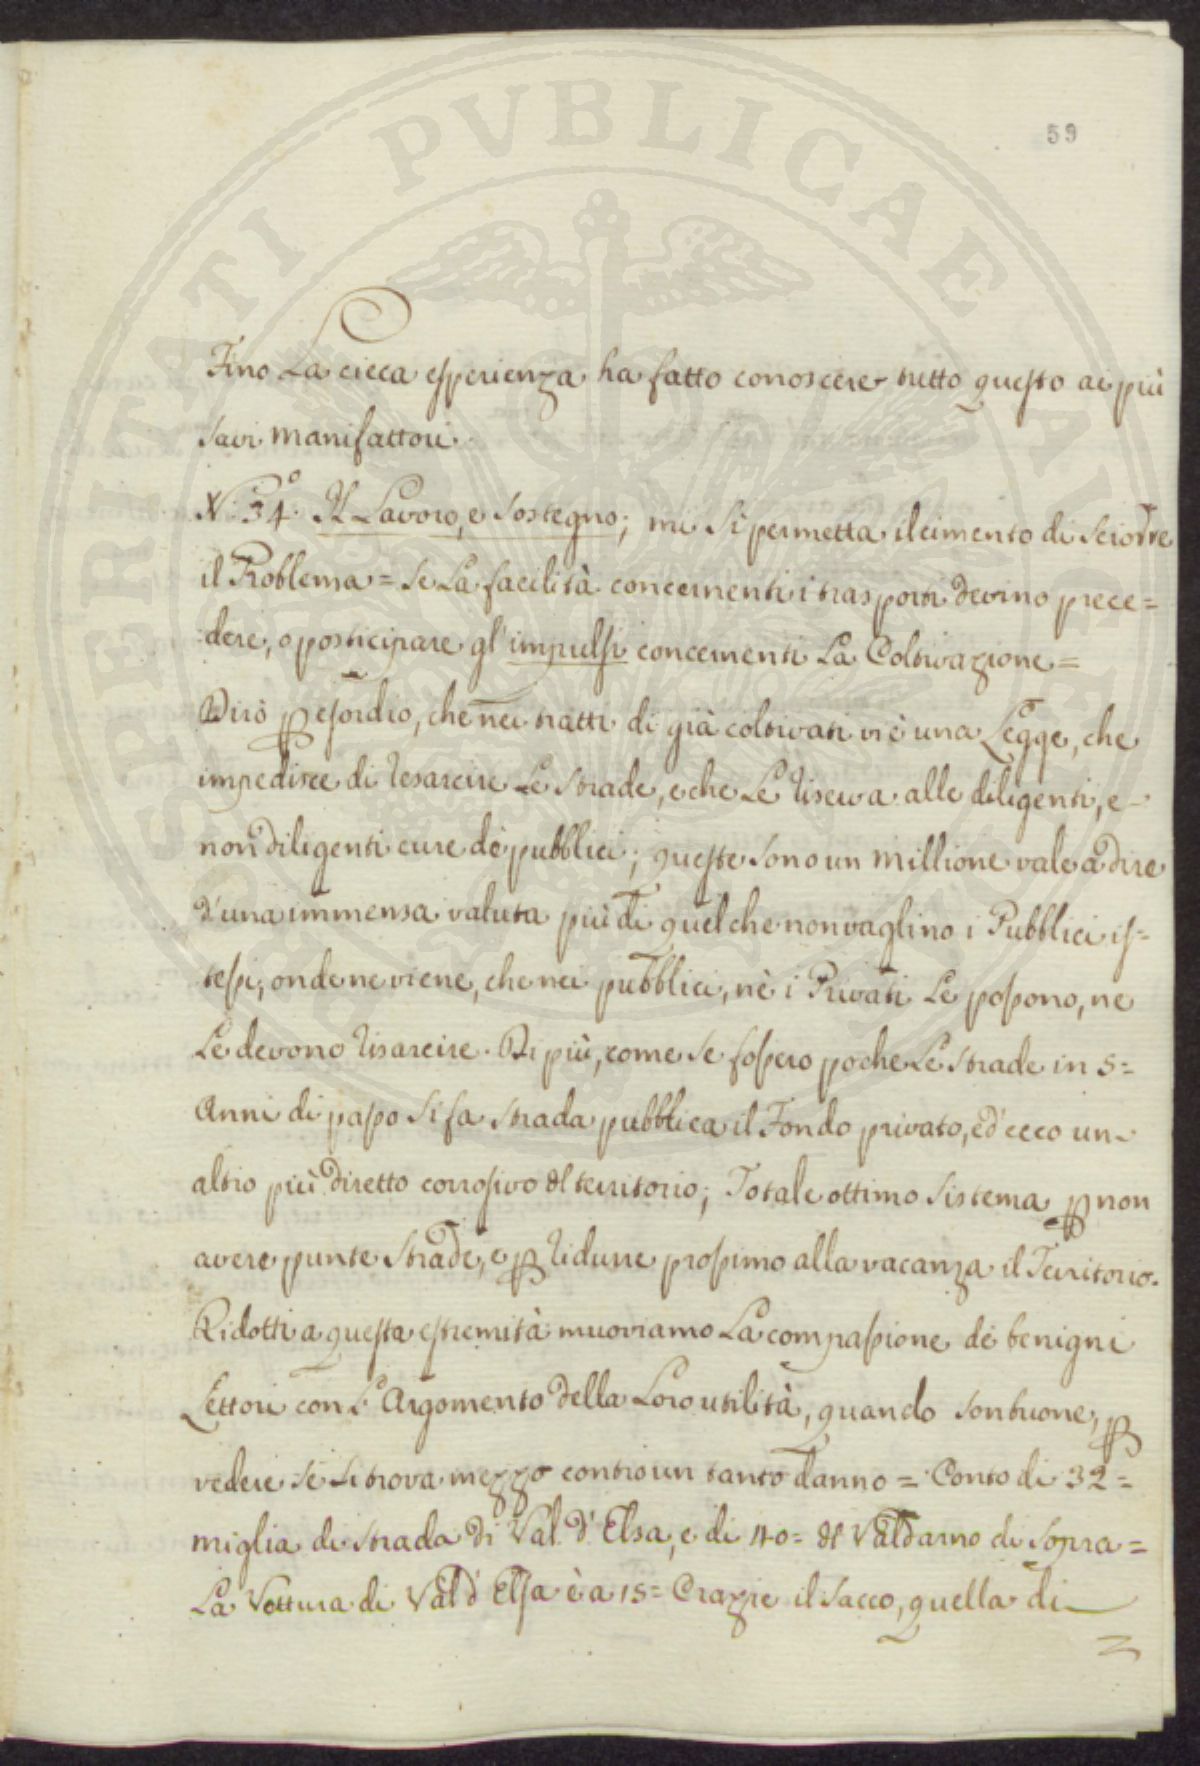 59
Fino La cieca esperienza ha fatto conoscere tutto questo ai più
savi manifattori.
N.° 34. Il Lavoro, e sostegno; mi si permetta il cimento di sciorre
il Problema = se La facilità concernenti i trasporti devino prece=
dere, o posticipare gl'impulsi concernenti La Coltivazione =
Dirò p esordio, che nei tratti di già coltivati vi è una Legge, che
impedisce di resarcire Le strade, e che Le riserva alle diligenti, e
non diligenti cure dè pubblici; queste sono un millione vale a dire
d'una immensa valuta più di quel che non vaglino i Pubblici is=
tessi; onde ne viene, che nei pubblici, nè i Privati Le possono, ne
Le devono risarcire. Di più, come se fossero poche Le strade in 5=
Anni di passo si fa strada pubblica il Fondo privato, ed ecco un
altro più diretto corrosivo del territorio; Totale ottimo sistema p non
avere punte strade, e p ridurre prossimo alla vacanza il Territorio.
Ridotti a questa estremità muoviamo La compassione dè benigni
Lettori con L'Argomento della Loro utilità, quando son buone, p
vedere se si trova mezzo contro un tanto danno = Conto di 32=
miglia di strada di Val d'Elsa, e di 40= del Valdarno di sopra=
La Vettura di Val d'Elsa è a 15= Crazie il sacco, quella di
SPERITATI PVBLICAE